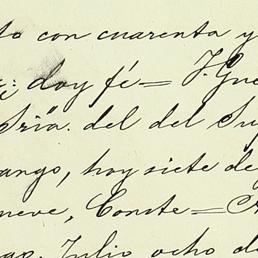 to con cuarenta y
doy fé = J. Gue
Sría. del del Su
ango, hoy siete de
neve, Conste = A
go, Julio ocho de